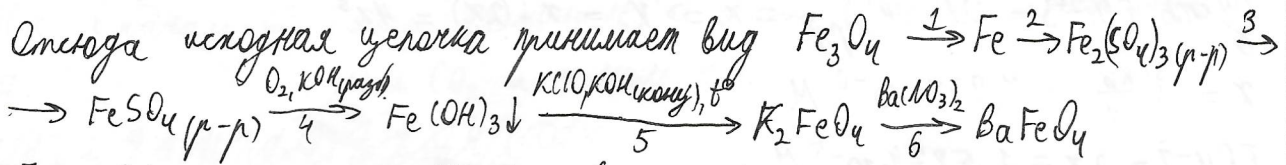 Отсюда исходная цепочка принимает вид Fe₃O₄ →1 Fe →2 Fe₂(SO₄)₃ (р-р) →3
→ FeSO₄ (р-р) →O₂, KOH(разб), 4 Fe(OH)₃↓ →KClO, KOH(конц), t°, 5 K₂FeO₄ →Ba(NO₃)₂, 6 BaFeO₄